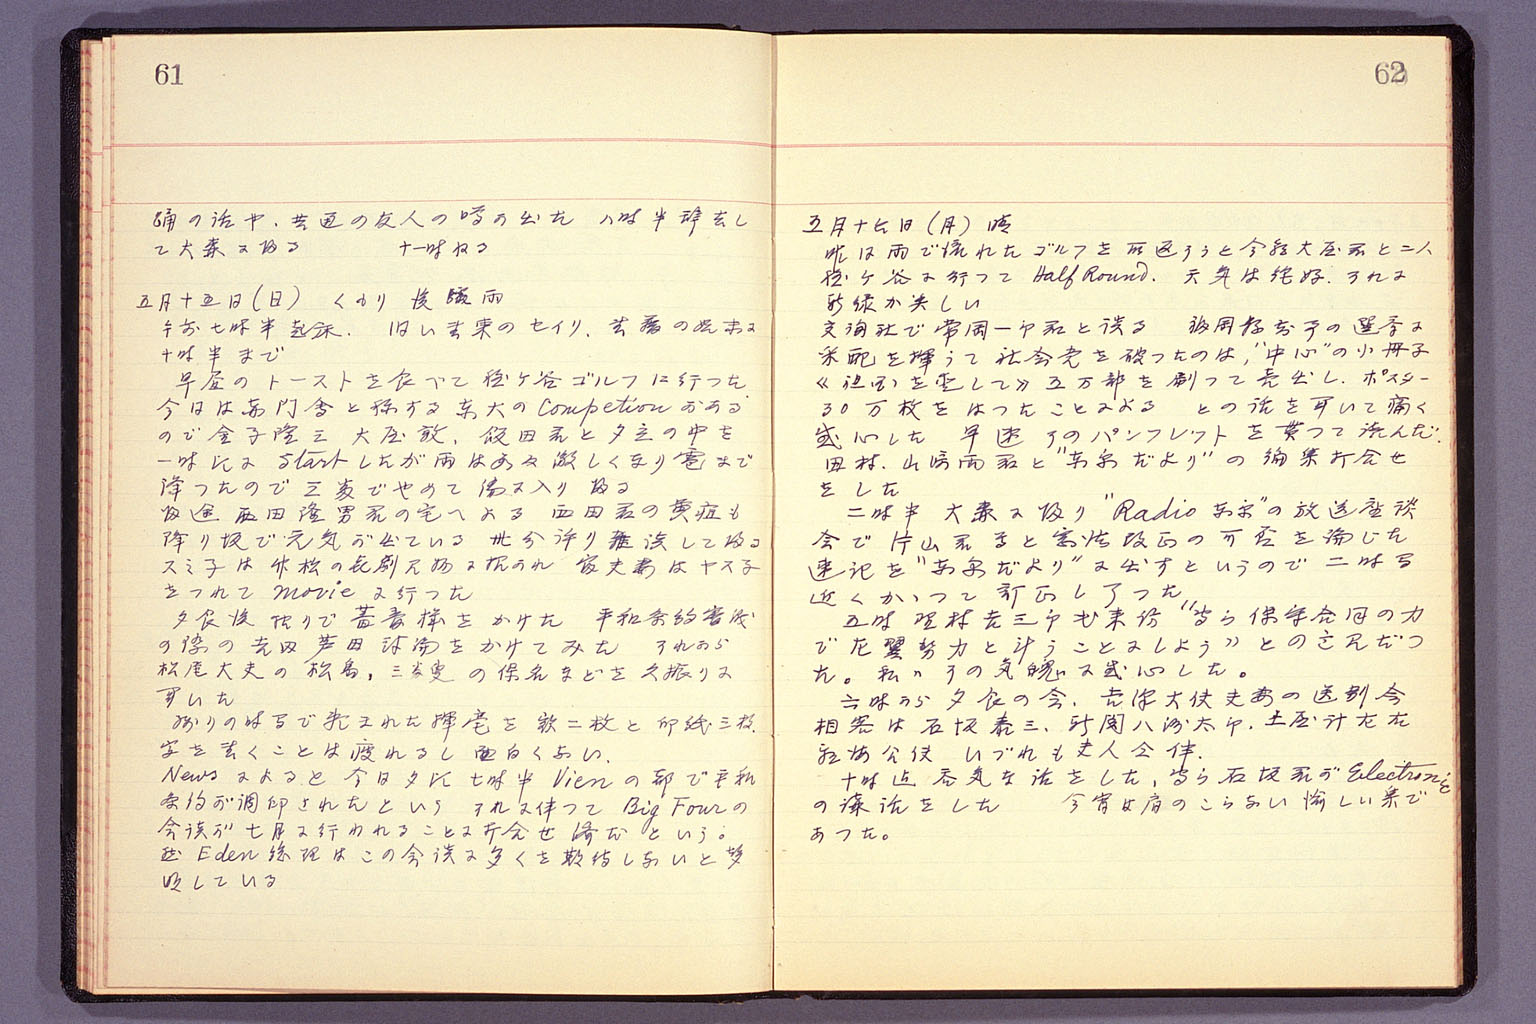 61
踊の話や、共通の友人の噂が出た 八時半辞去し
て大森に帰る 十一時ねる
五月十五日(日) くもり 後驟雨
午前七時半起床. 古い書束のセイリ、
十時半まで
早昼のトーストを食べて程ヶ谷ゴルフに行つた
今日は赤門会と称する東大のCompetionがある
ので金子隆三 大屋敦、飯田君と夕立の中を
一時にstartしたが雨は益々激しくなり雹まで
降つたので三麦でやめて湯に入り帰る
帰途西田隆男君の宅へよる 西田君の黄疸も
降り坂で元気が出ている 卅分許り雑談して帰る
スミ子は の喜劇見物に招かれ 夫妻はヤス子
をつれてmovieに行つた
夕食後独りで蓄音機をかけた 平和条約
の際の吉田 芦田 をかけてみた それから
松尾大夫の松島, の保名などを久振りに
聞いた
頼まれた揮毫を 二枚と 三枚
字を書くことは疲れるし面白くない.
Newsによると今日夕に七時半Vienの郊で平和
条約が調印されたという それに伴つてBig Fourの
会談が七月に行われることに打合せ済だという。
Eden総理はこの会談に多くを期待しないと
している
62
五月十六日(月) 晴
昨は雨で流れたゴルフを取返そうと今朝大屋君と二人
程ヶ谷に行つてHalf Round. 天気は絶好. それに
新緑が美しい
交詢社で常岡一郎君と談る 福岡 の選挙に
采配を揮うて社会党を破つたのは,"中心"の小冊子
《祖国を 》五万部を刷つて売出し. ポスター
30万枚をはつたことによる との話を聞いて痛く
感心した 早速そのパンフレットを貰つて読んだ.
田村. 山崎両君と"東京だより"の編集打合せ
をした
二時半 大森に帰り"Radio東京"の放送座談
会で片山君等と憲法改正の可否を論じた
速記を"東京だより"に出すというので二時間
近くかゝつて訂正し了つた
五時 吉三郎氏来訪"吾ら保守合同の力
で左翼勢力と斗うことにしよう"との意見だつ
た。私ハその気魄に感心した。
六時から夕食の会. 大使夫妻の送別会
相客は石坂泰三、新関八洲太郎. 土屋計左右
公使 いづれも夫人同伴.
十時近 呑気な話をした, 吾ら石坂君がElectronicを
の講話をした 今宵は肩のこらない愉しい集で
あつた。